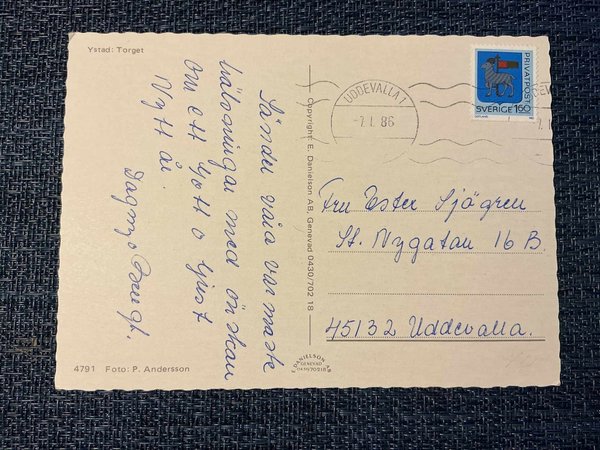 Ystad: Torget
Sänder våra varmaste
hälsningar med önskan
om ett Gott o ljust
Nytt år.
Dagny o Bengt.
4791 Foto: P. Andersson
Copyright: E. Danielson AB, Genevad 0430/702 18
E. DANIELSON AB
GENEVAD
0430/70218
UDDEVALLA 1
-7. 1. 86
PRIVATPOST
SVERIGE 160
GOTLAND
Fru Ester Sjögren
St. Nygatan 16 B.
45132 Uddevalla.